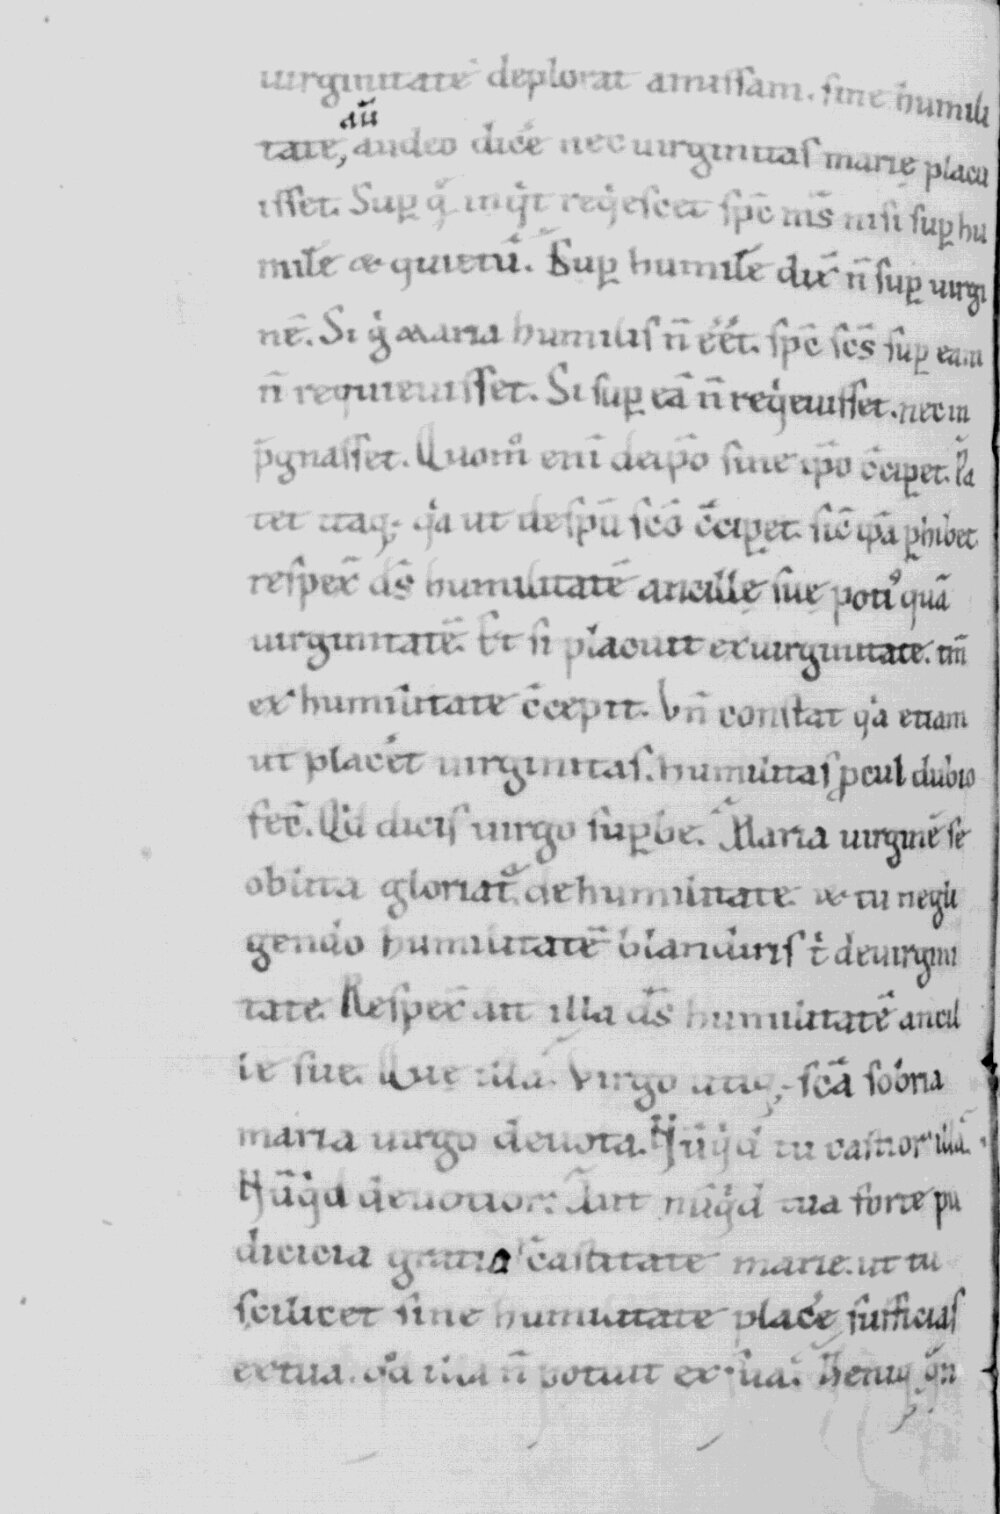 uirginitatē deplorat amissam. sine humili
aū
tate, audeo dicē nec uirginitas marię placu
isset. Sup̱ qͣ inqͥt reqͥescet sp̄c m̄s nisi sup̱ hu
milē & quietū. Sup̱ humilē dix̄ n̄ sup̱ uirgi
nē. Si gͥ maria humilis n̄ eēt. sp̄c sc̄s sup̱ eam
n̄ requieuisset. Si sup̱ eā n̄ reqͥeuisset. nec in
p̄gnasset. Quom̊ eni̅ de ip̄o sine ip̄o c̄cip̱et. Pa
tet itaq;. qͥa ut de sp̄u sc̄o c̄cip̱et. sic̄ ip̄a p̱hibet
respex̄ d̄s humilitatē ancille sue poti᷒ quā
uirginitatē. Et si placuit ex uirginitate. tn̄
ex humilitate c̄cepit. Vn̄ constat qͥa etiam
ut placēt uirginitas. humilitas ꝓcul dubio
fec̄. Qͥd dicis uirgo sup̱be. Maria uirginē se
oblita gloriat᷒ de humilitate. & tu negli
gendo humilitatē blandiris tͥ de uirgini
tate. Respex̄ ait illa d̄s humilitatē ancil
le sue. Que illa. Virgo utiq;. sc̄a sobria
maria uirgo deuota. Nūqͥd tu castior illa.
Nūqͥd deuotior. Aut nūqͥd tua forte pu
dicicia gratior castitate marie. ut tu
scilicet sine humilitate placē sufficias
ex tua. qđ illa n̄ potuit ex sua. Deniq qͣn